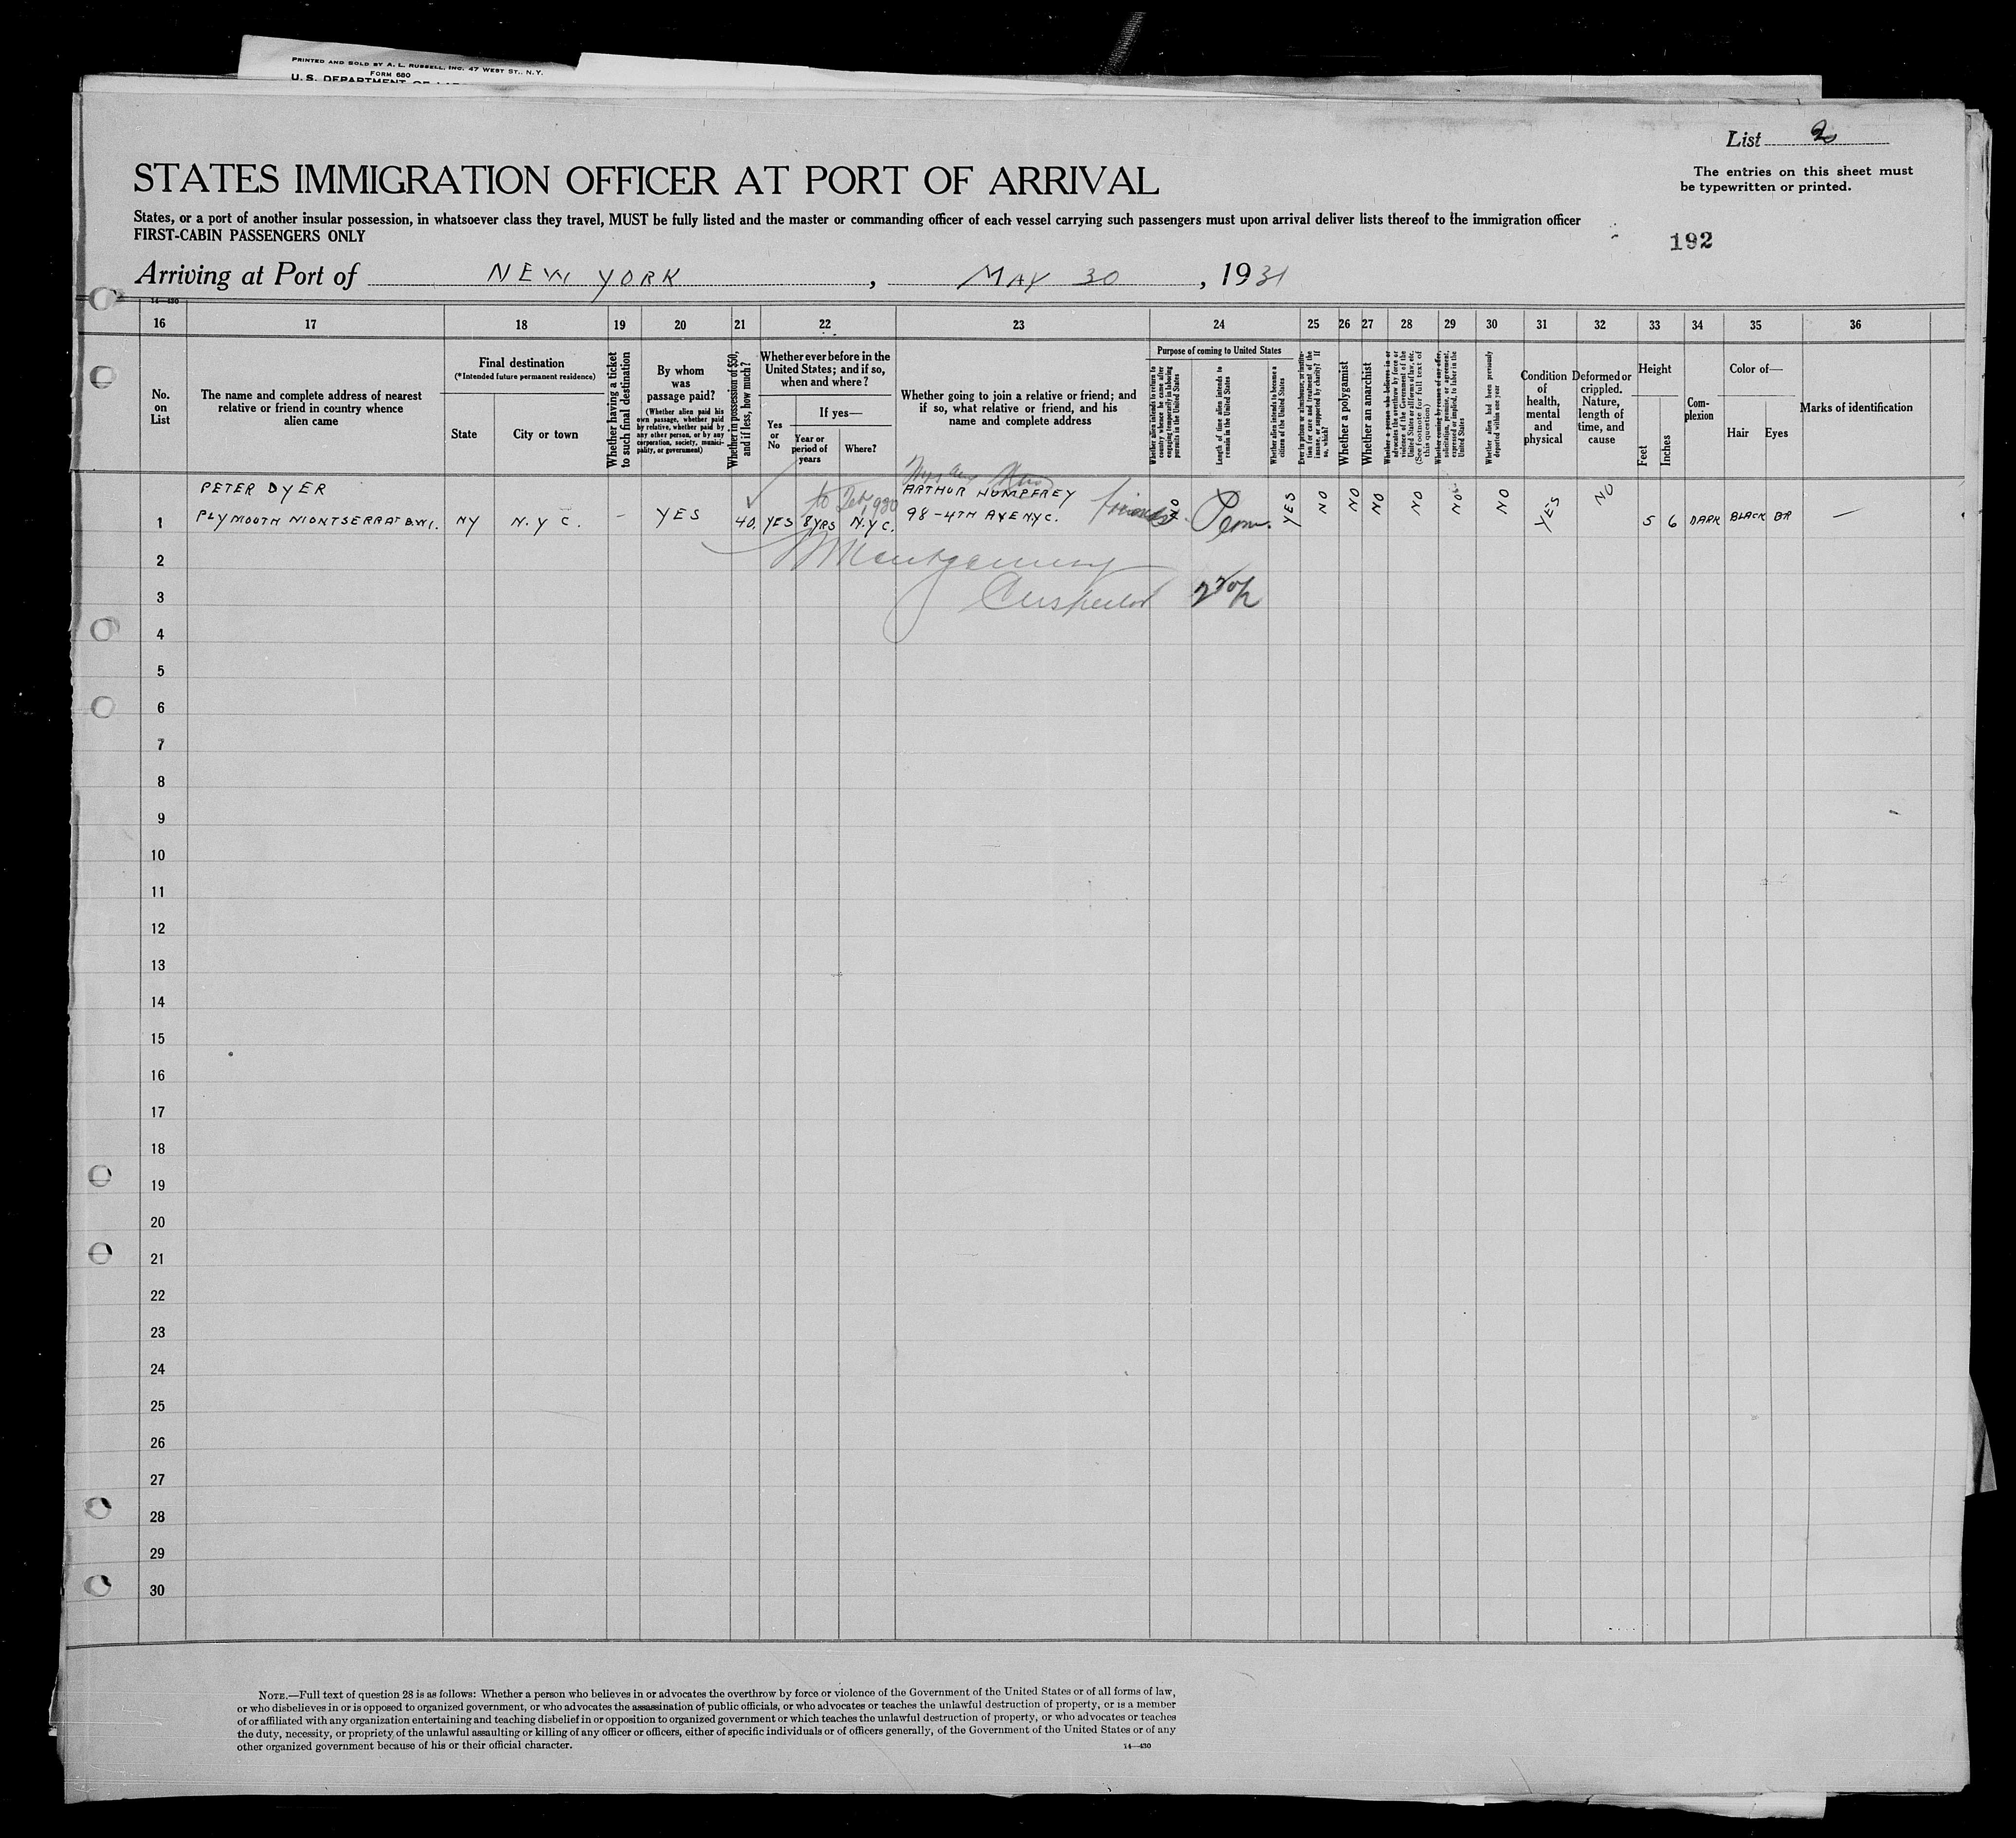 PRINTED AND SOLD BY A. L. RUSSELL, INC. 47 WEST ST., N.Y.
FORM 680
U. S. DEPARTMENT OF
List 2
STATES IMMIGRATION OFFICER AT PORT OF ARRIVAL
The entries on this sheet must
be typewritten or printed.
States, or a port of another insular possession, in whatsoever class they travel, MUST be fully listed and the master or commanding officer of each vessel carrying such passengers must upon arrival deliver lists thereof to the immigration officer
FIRST-CABIN PASSENGERS ONLY
192
Arriving at Port of NEW YORK, MAY 30, 1931
14—430
16 17 18 19 20 21 22 23 24 25 26 27 28 29 30 31 32 33 34 35 36
No. on List
The name and complete address of nearest relative or friend in country whence alien came
Final destination
(*Intended future permanent residence)
State
City or town
Whether having a ticket to such final destination
By whom was passage paid?
(Whether alien paid his own passage, whether paid by relative, whether paid by any other person, or by any corporation, society, municipality, or government)
Whether in possession of $50, and if less, how much?
Whether ever before in the United States; and if so, when and where?
Yes or No
If yes—
Year or period of years
Where?
Whether going to join a relative or friend; and if so, what relative or friend, and his name and complete address
Purpose of coming to United States
Whether alien intends to return to country whence he came after engaging temporarily in laboring pursuits in the United States
Length of time alien intends to remain in the United States
Whether alien intends to become a citizen of the United States
Ever in prison or almshouse, or institution for care and treatment of the insane, or supported by charity? If so, which?
Whether a polygamist
Whether an anarchist
Whether a person who believes in or advocates the overthrow by force or violence of the Government of the United States or all forms of law, etc. (See footnote for full text of this question)
Whether coming by reason of any offer, solicitation, promise, or agreement, expressed or implied, to labor in the United States
Whether alien had been previously deported within one year
Condition of health, mental and physical
Deformed or crippled. Nature, length of time, and cause
Height
Feet
Inches
Complexion
Color of—
Hair
Eyes
Marks of identification
PETER DYER
to Feb, 1930
ARTHUR HUMPFREY
friend
1 PLYMOUTH MONTSERRAT B.W.I. NY N.Y C. – YES 40. YES 8 YRS N.Y C. 98-4TH AVE NYC. NO Perm. YES NO NO NO NO NO NO YES NO 5 6 DARK BLACK BR —
2 Montgomery
3 Inspector
4
5
6
7
8
9
10
11
12
13
14
15
16
17
18
19
20
21
22
23
24
25
26
27
28
29
30
NOTE.—Full text of question 28 is as follows: Whether a person who believes in or advocates the overthrow by force or violence of the Government of the United States or of all forms of law,
or who disbelieves in or is opposed to organized government, or who advocates the assassination of public officials, or who advocates or teaches the unlawful destruction of property, or is a member
of or affiliated with any organization entertaining and teaching disbelief in or opposition to organized government or which teaches the unlawful destruction of property, or who advocates or teaches
the duty, necessity, or propriety of the unlawful assaulting or killing of any officer or officers, either of specific individuals or of officers generally, of the Government of the United States or of any
other organized government because of his or their official character.
14—430